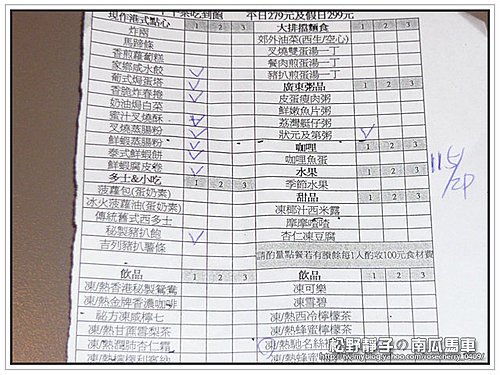 下午茶吃到飽 平日279元及假日299元
現作港式點心 1 2 3
炸兩
馬蹄條
香煎蘿蔔糕
家鄉咸水餃
葡式焗蛋塔
香脆炸春捲
奶油焗白菜
蜜汁叉燒酥
叉燒蒸腸粉
鮮蝦蒸腸粉
泰式鮮蝦餅
鮮蝦腐皮卷
多士&小吃 1 2 3
菠蘿包(蛋奶素)
冰火菠蘿油(蛋奶素)
傳統舊式西多士
秘製豬扒飽
吉列豬扒薯條
飲品 1 2 3
凍/熱香港秘製鴛鴦
凍/熱金牌香濃咖啡
祕方凍咸檸七
凍/熱甘蔗雪梨茶
凍/熱潤肺杏仁霜
大排擋麵食 1 2 3
郊外油菜(西生/空心)
叉燒雙蛋湯一丁
餐肉煎蛋湯一丁
豬扒煎蛋湯一丁
廣東粥品 1 2 3
皮蛋瘦肉粥
鮮嫩魚片粥
荔灣艇仔粥
狀元及第粥
咖哩 1 2 3
咖哩魚蛋
水果 1 2 3
季節水果
甜品 1 2 3
凍椰汁西米露
摩摩喳喳
杏仁凍豆腐
請酌量點餐若有賸餘每1人酌收100元食材費
飲品 1 2 3
凍可樂
凍雪碧
凍/熱西冷檸檬茶
凍/熱蜂蜜檸檬茶
凍/熱馳名絲襪
松野靜子の南瓜馬車